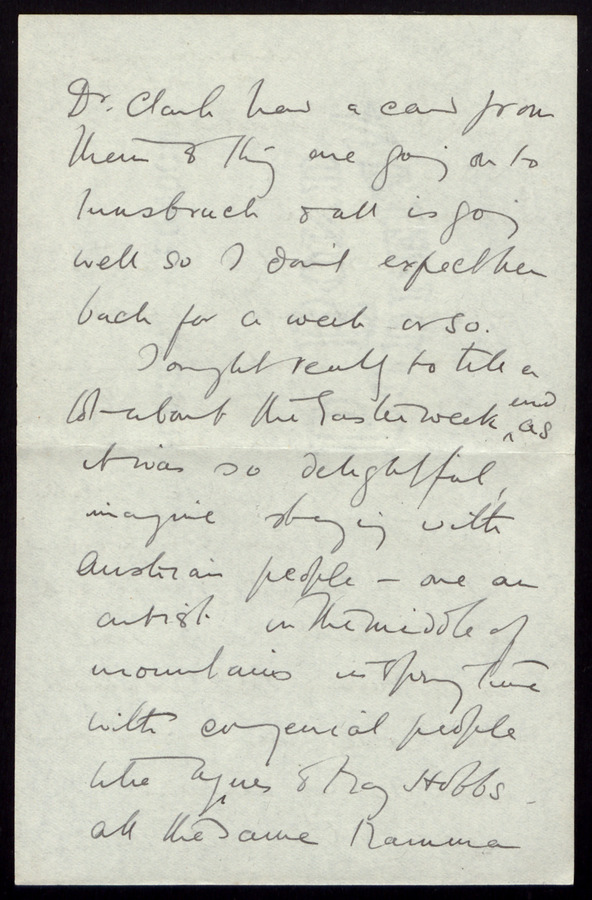 Dr. Clark had a card from
them & they are going on to
Innsbruck & all is going
well so I don't expect them
back for a week or so.
I ought really to tell a
lot about the Easter week end as
it was so delightful,
imagine staying with
Austrian people – one an
artist in the middle of
mountains in Spring time
with congenial people
like Agnes & Hobbs.
all the same